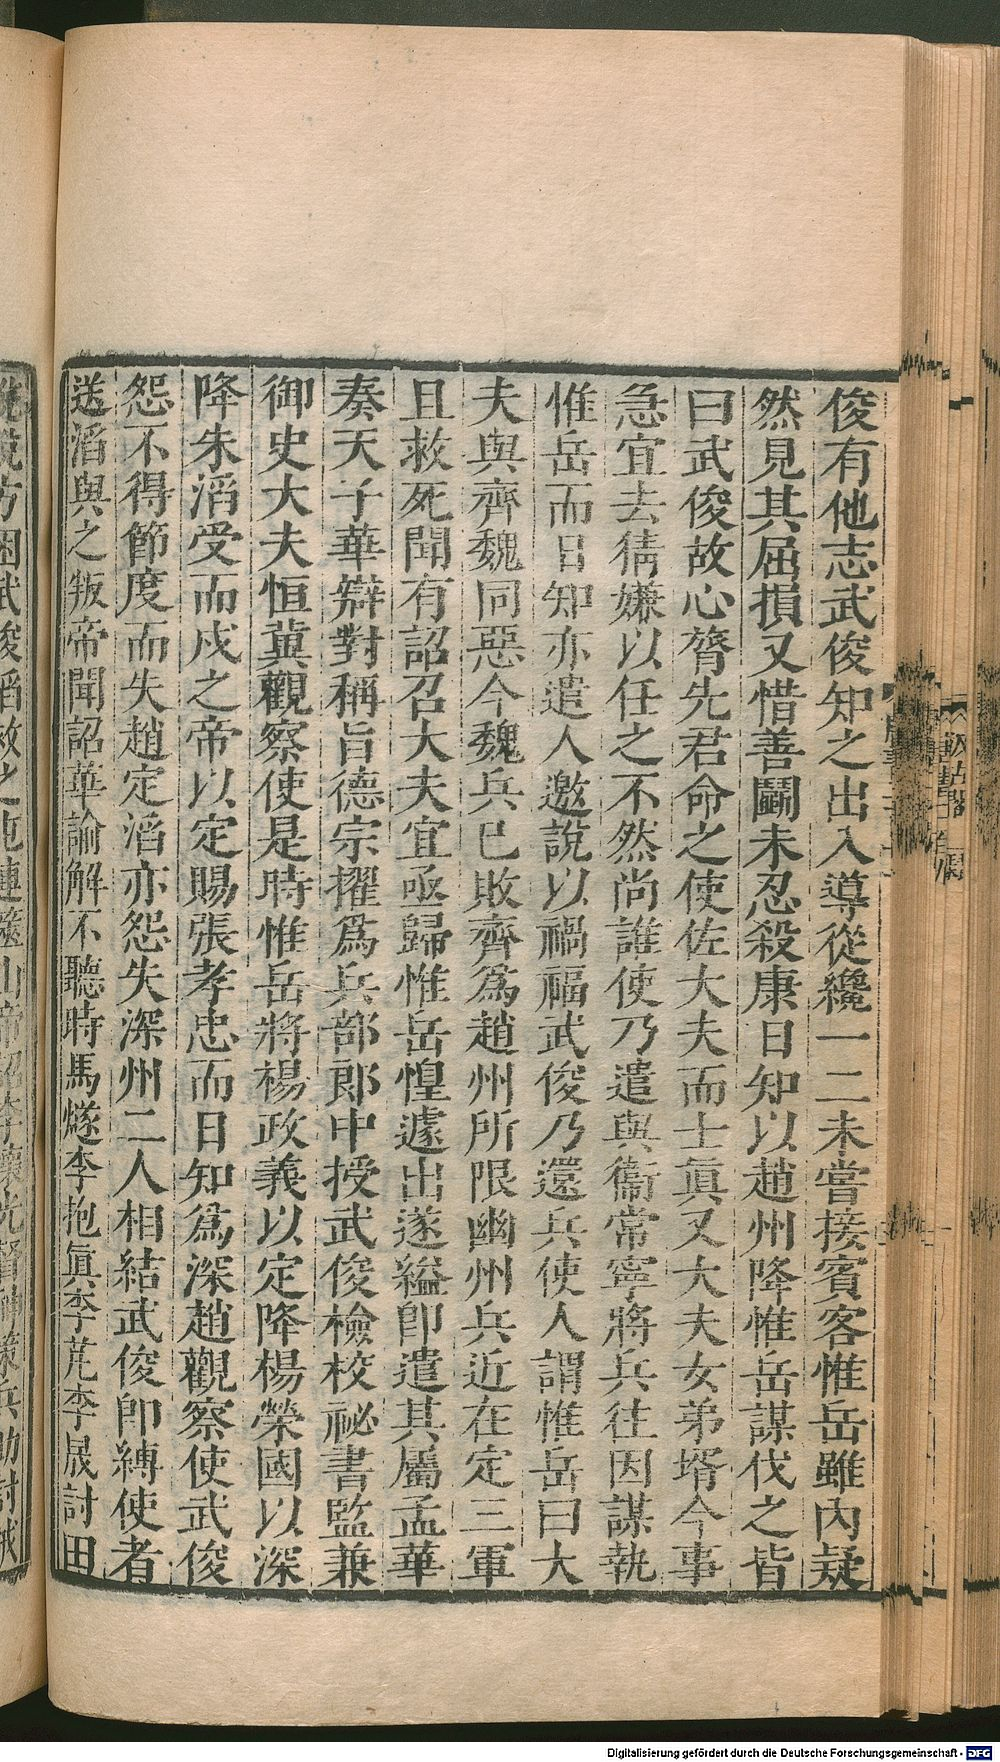 俊有他志武俊知之出入導從纔一二未嘗接賓客惟岳雖內疑
然見其屈損又惜善鬬未忍殺康日知以趙州降惟岳謀伐之皆
曰武俊故心膂先君命之使佐大夫而士真又大夫女弟壻今事
急宜去猜嫌以任之不然尚誰使乃遣與衞常寧將兵往因謀執
惟岳而日知亦遣人邀說以禍福武俊乃還兵使人謂惟岳曰大
夫與齊魏同惡今魏兵已敗齊為趙州所限幽州兵近在定三軍
且救死聞有詔召大夫宜亟歸惟岳惶遽出遂縊即遣其屬孟華
奏天子華辯對稱旨德宗擢為兵部郎中授武俊檢校祕書監兼
御史大夫恒冀觀察使是時惟岳將楊政義以定降楊榮國以深
降朱滔受而戍之帝以定賜張孝忠而日知為深趙觀察使武俊
怨不得節度而失趙定滔亦怨失深州二人相結武俊即縛使者
送滔與之叛帝聞詔華諭解不聽時馬燧李抱眞李芃李晟討田
Digitalisierung gefördert durch die Deutsche Forschungsgemeinschaft - DFG